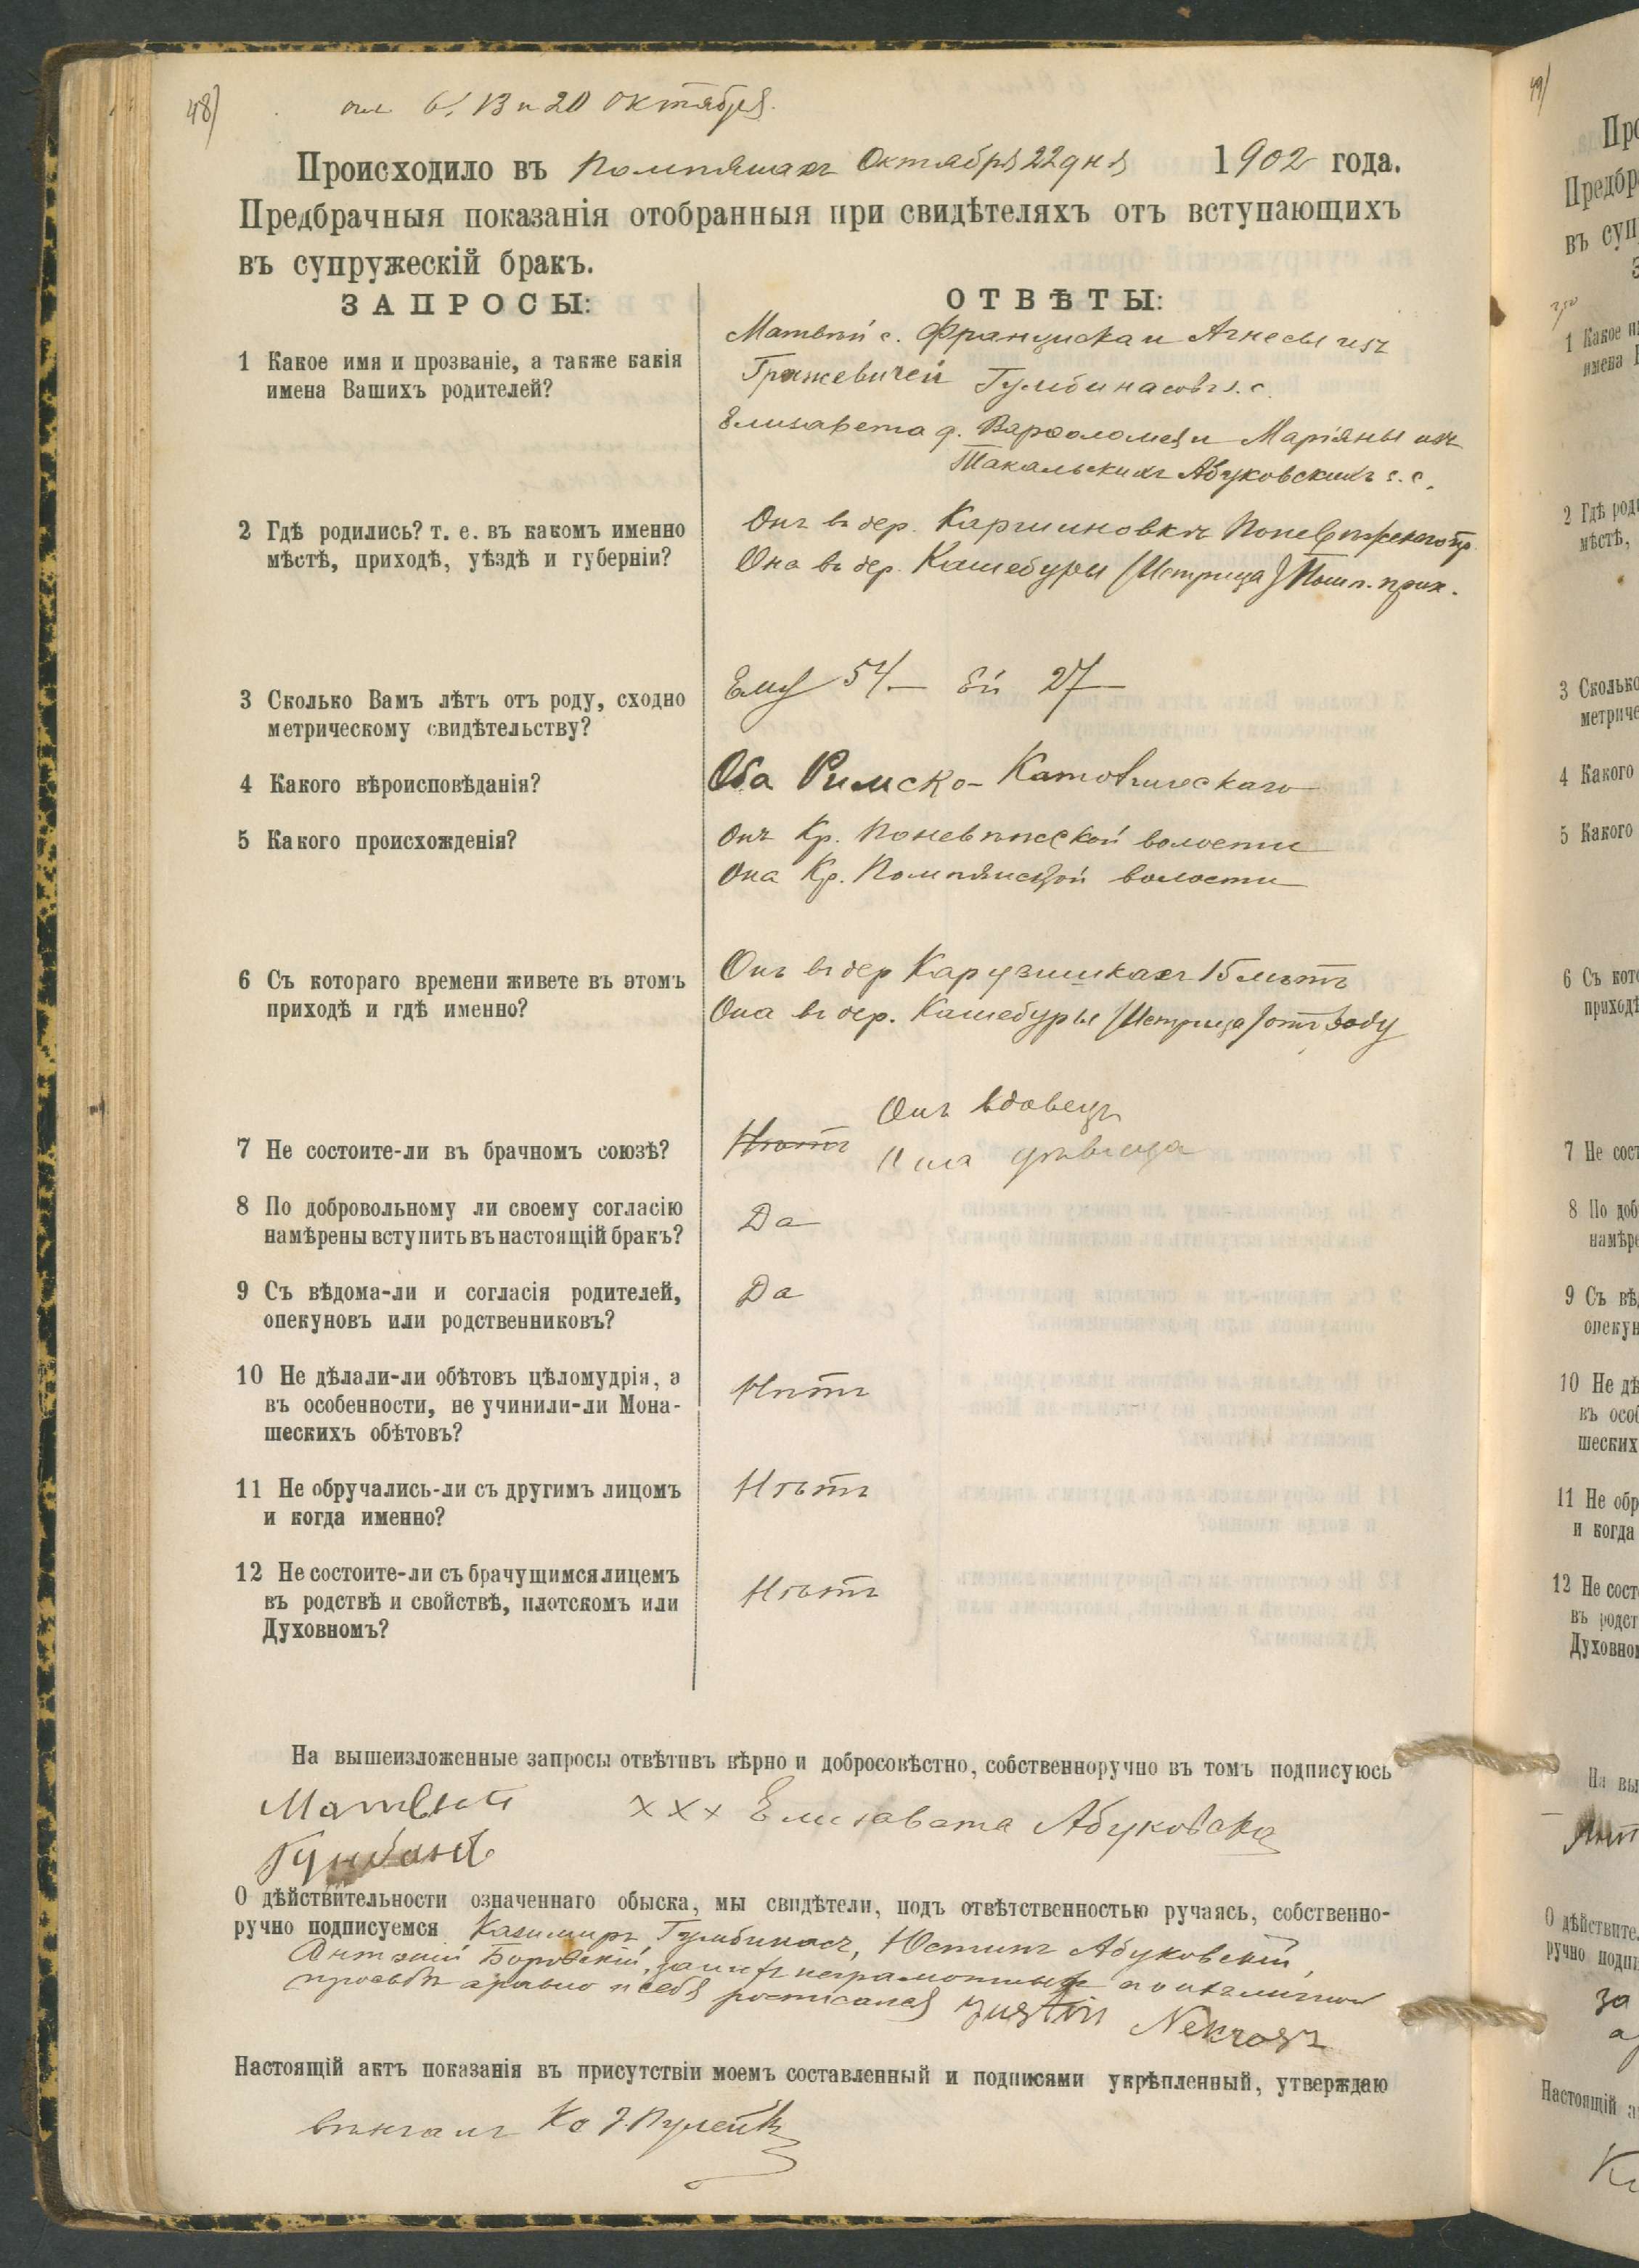 48)
огл 6, 13 и 20 октября.
Происходило въ Помпянахъ Октября 22 дня 1902 года.
Предбрачныя показанія отобранныя при свидѣтеляхъ отъ вступающихъ
въ супружескій бракъ.
ЗАПРОСЫ:
ОТВѢТЫ:
1 Какое имя и прозваніе, а также какія
имена Вашихъ родителей?
Матвѣй с. Франциска и Агнесы изъ
Гумбинасовъ з. с.
Елизавета д. Варѳоломея и Маріяны изъ
Абуковскихъ з. с.
2 Гдѣ родились? т. е. въ какомъ именно
мѣстѣ, приходѣ, уѣздѣ и губерніи?
Онъ въ дер. Поневѣжскаго пр.
Она въ дер. Кашебуры (Истрица) Помп. прих.
3 Сколько Вамъ лѣтъ отъ роду, сходно
метрическому свидѣтельству?
Ему 54 Ей 27
4 Какого вѣроисповѣданія?
Оба Римско-Католическаго
5 Какого происхожденія?
Онъ Кр. Поневѣжской волости
Она Кр. Помпянской волости
6 Съ котораго времени живете въ этомъ
приходѣ и гдѣ именно?
Онъ въ дер 15 лѣтъ
Она въ дер. Кашебуры (Истрица) отъ роду
7 Не состоите-ли въ брачномъ союзѣ?
Нѣтъ
Онъ вдовецъ
Она дѣвица
8 По добровольному ли своему согласію
намѣрены вступить въ настоящій бракъ?
Да
9 Съ вѣдома-ли и согласія родителей,
опекуновъ или родственниковъ?
Да
10 Не дѣлали-ли обѣтовъ цѣломудрія, а
въ особенности, не учинили-ли Мона-
шескихъ обѣтовъ?
Нѣтъ
11 Не обручались-ли съ другимъ лицомъ
и когда именно?
Нѣтъ
12 Не состоите-ли съ брачущимся лицемъ
въ родствѣ и свойствѣ, плотскомъ или
Духовномъ?
Нѣтъ
На вышеизложенные запросы отвѣтивъ вѣрно и добросовѣстно, собственноручно въ томъ подписуюсь
Матвѣй ххх Елизавета Абуковска
О дѣйствительности означеннаго обыска, мы свидѣтели, подъ отвѣтственностью ручаясь, собственно-
ручно подписуемся Казимиръ Гумбинасъ, Юстинъ Абуковскій,
Антоній Боровскій, неграмотныхъ по ихъ личной
просьбѣ а равно и себя росписался
Настоящій актъ показанія въ присутствіи моемъ составленный и подписями укрѣпленный, утверждаю
вѣнчалъ Кс